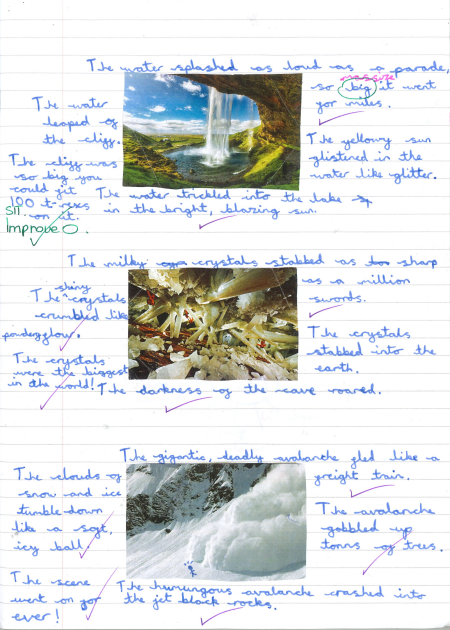 The water splashed as loud as a parade,
massive
so big it went
for miles.
The water
leaped of
the cliff.
The yellowy sun
glistened in the
water like glitter.
The cliff was
so big you
could fit
100 t-rexes
on it.
The water trickled into the lake
in the bright, blazing sun.
SIT
Improve O.
The milky crystals stabbed as sharp
as a million
swords.
shiny
The ^ crystals
crumbled like
The crystals
stabbed into the
earth.
The crystals
were the biggest
in the world!
The darkness of the cave roared.
The gigantic, deadly avalanche fled like a
freight train.
The clouds of
snow and ice
tumble down
like a soft,
icy ball.
The avalanche
gobbled up
tonns of trees.
The scene
went on for
ever!
The humungous avalanche crashed into
the jet black rocks.